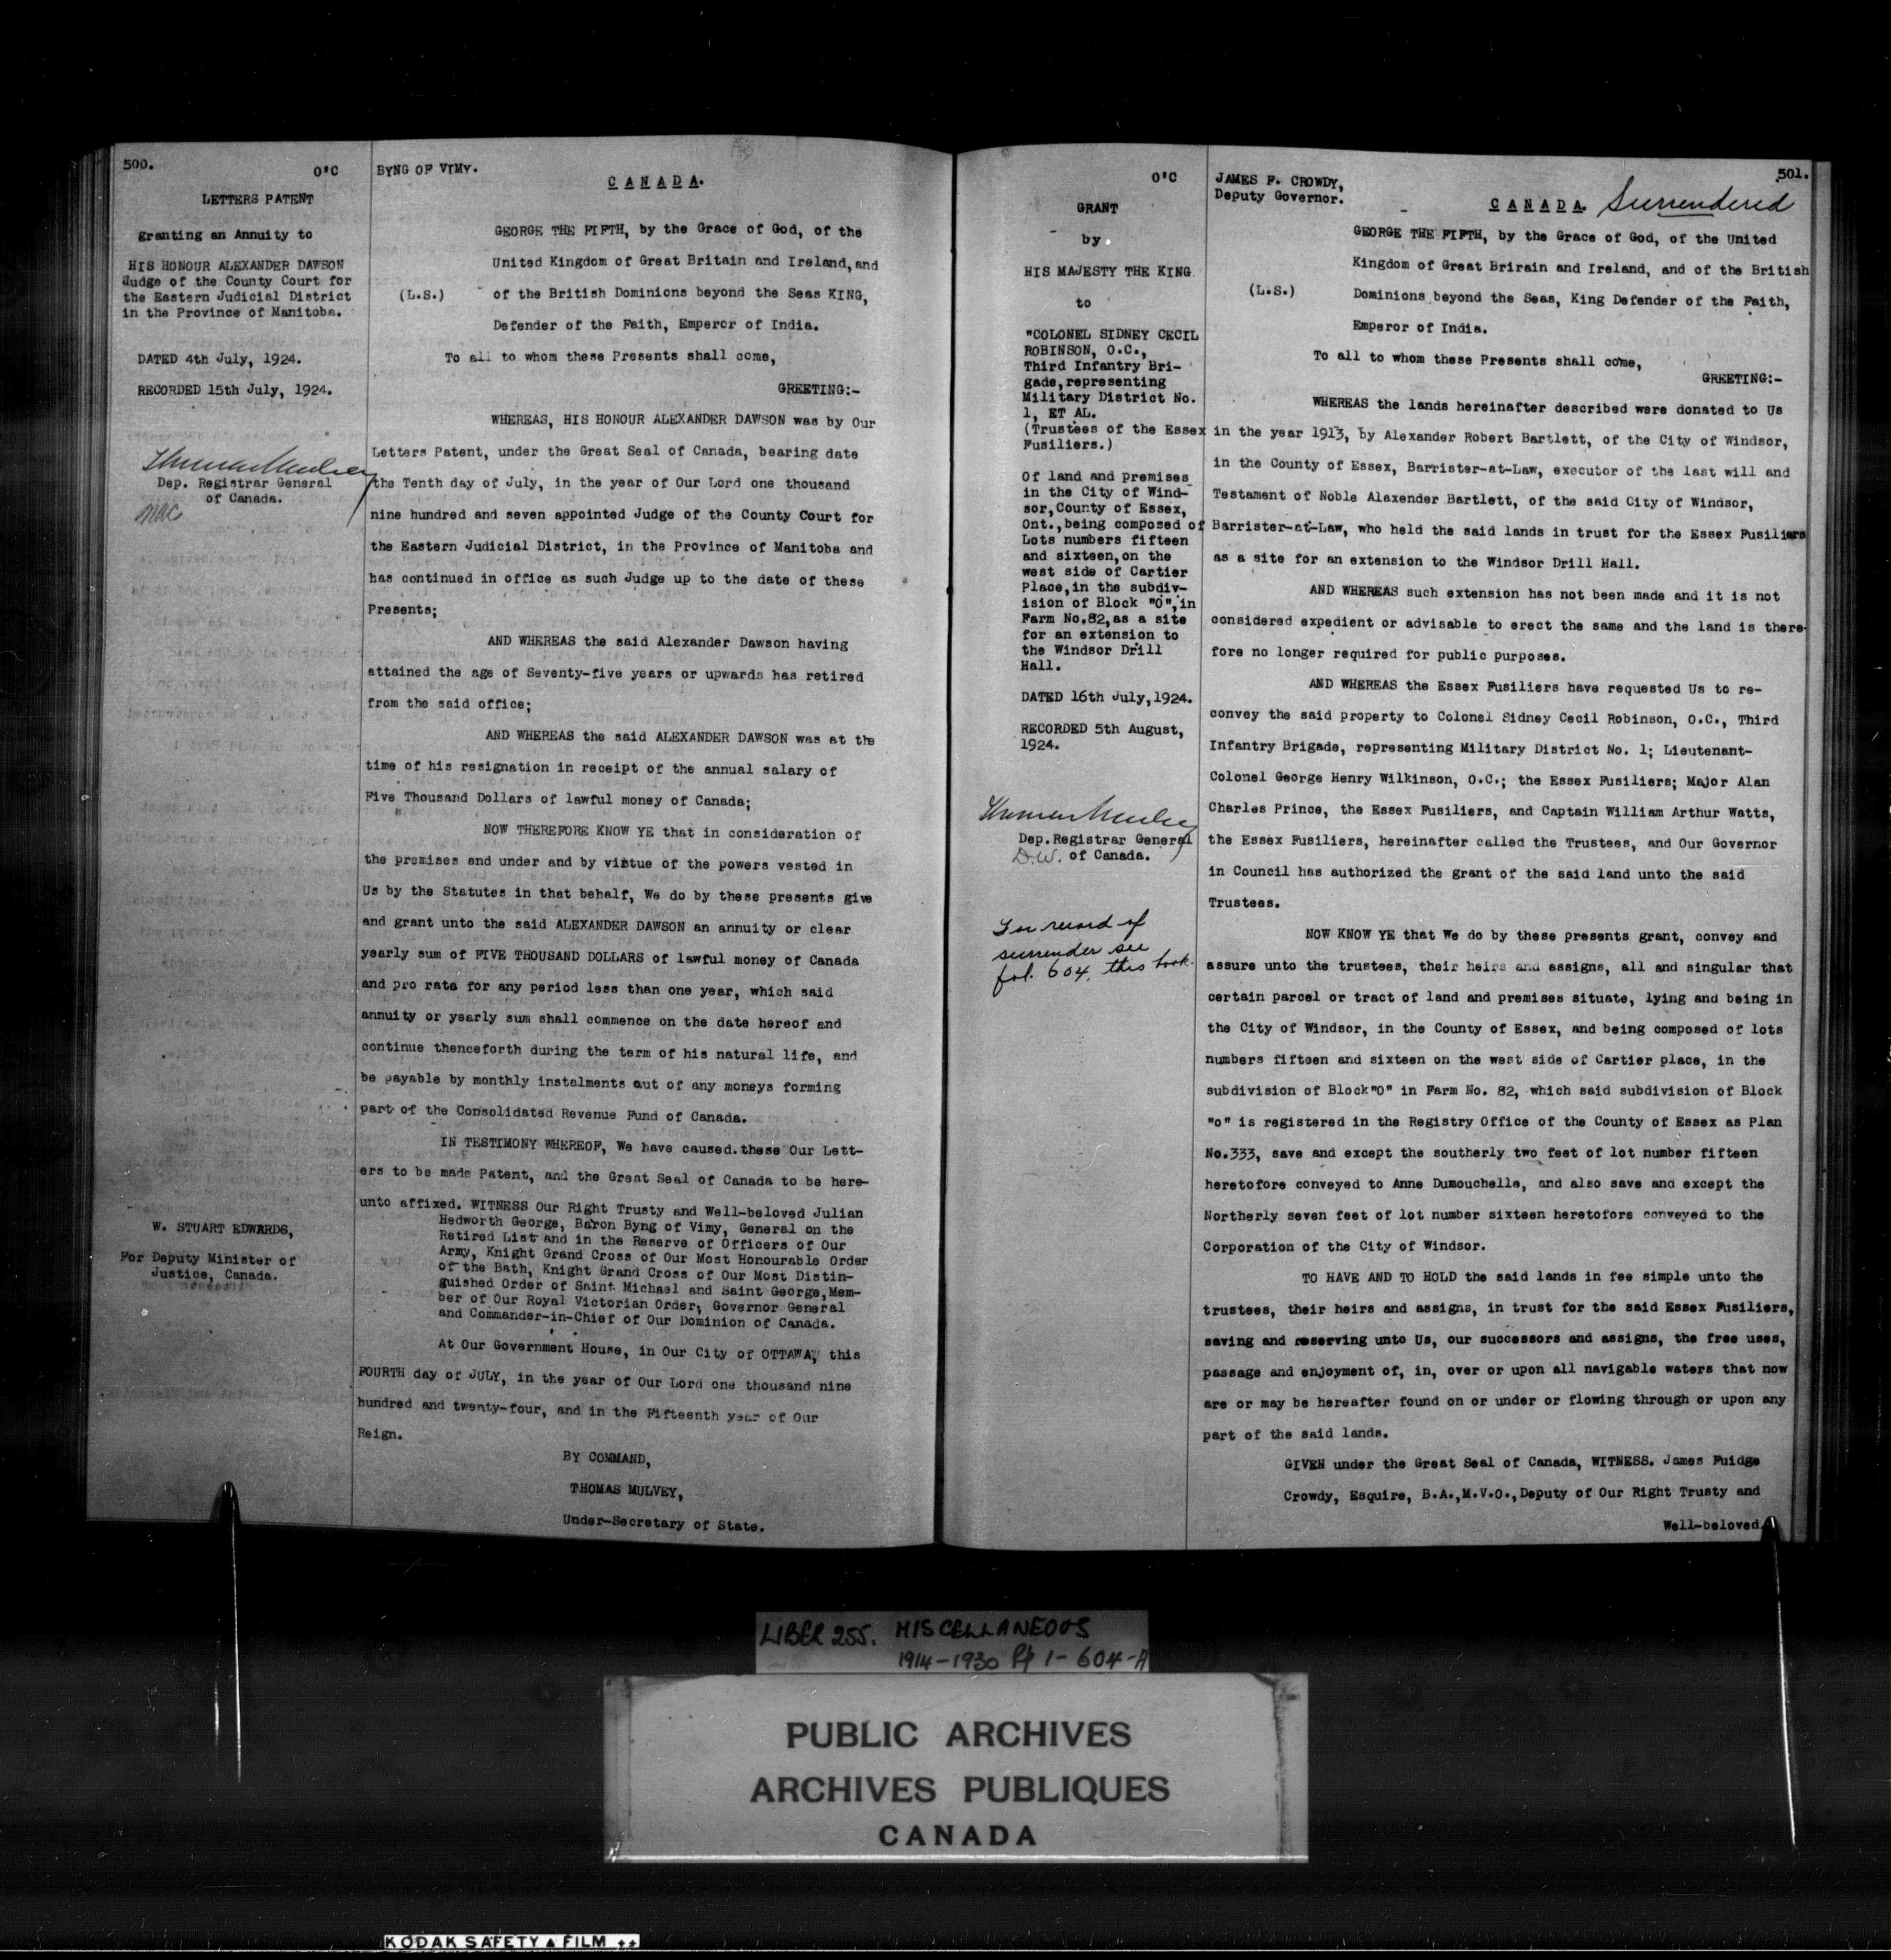 500.
O'C
LETTERS PATENT
granting an Annuity to
HIS HONOUR ALEXANDER DAWSON
Judge of the County Court for
the Eastern Judicial District
in the Province of Manitoba.
DATED 4th July, 1924.
RECORDED 15th July, 1924.
Thomas Mulvey
Dep. Registrar General
of Canada.
W. STUART EDWARDS,
For Deputy Minister of
Justice, Canada.
BYNG OF VIMY.
CANADA.
GEORGE THE FIFTH, by the Grace of God, of the
United Kingdom of Great Britain and Ireland, and
(L.S.) of the British Dominions beyond the Seas KING,
Defender of the Faith, Emperor of India.
To all to whom these Presents shall come,
GREETING:-
WHEREAS, HIS HONOUR ALEXANDER DAWSON was by Our
Letters Patent, under the Great Seal of Canada, bearing date
the Tenth day of July, in the year of Our Lord one thousand
nine hundred and seven appointed Judge of the County Court for
the Eastern Judicial District, in the Province of Manitoba and
has continued in office as such Judge up to the date of these
Presents;
AND WHEREAS the said Alexander Dawson having
attained the age of Seventy-five years or upwards has retired
from the said office;
AND WHEREAS the said ALEXANDER DAWSON was at the
time of his resignation in receipt of the annual salary of
Five Thousand Dollars of lawful money of Canada;
NOW THEREFORE KNOW YE that in consideration of
the premises and under and by virtue of the powers vested in
Us by the Statutes in that behalf, We do by these presents give
and grant unto the said ALEXANDER DAWSON an annuity or clear
yearly sum of FIVE THOUSAND DOLLARS of lawful money of Canada
and pro rata for any period less than one year, which said
annuity or yearly sum shall commence on the date hereof and
continue thenceforth during the term of his natural life, and
be payable by monthly instalments out of any moneys forming
part of the Consolidated Revenue Fund of Canada.
IN TESTIMONY WHEREOF, We have caused these Our Lett-
ers to be made Patent, and the Great Seal of Canada to be here-
unto affixed. WITNESS Our Right Trusty and Well-beloved Julian
Hedworth George, Baron Byng of Vimy, General on the
Retired List and in the Reserve of Officers of Our
Army, Knight Grand Cross of Our Most Honourable Order
of the Bath, Knight Grand Cross of Our Most Distin-
guished Order of Saint Michael and Saint George, Mem-
ber of Our Royal Victorian Order, Governor General
and Commander-in-Chief of Our Dominion of Canada.
At Our Government House, in Our City of OTTAWA, this
FOURTH day of JULY, in the year of Our Lord one thousand nine
hundred and twenty-four, and in the Fifteenth year of Our
Reign.
BY COMMAND,
THOMAS MULVEY,
Under-Secretary of State.
O'C
GRANT
by
HIS MAJESTY THE KING
to
"COLONEL SIDNEY CECIL
ROBINSON, O.C.,
Third Infantry Bri-
gade, representing
Military District No.
1, ET AL.
(Trustees of the Essex
Fusiliers.)
Of land and premises
in the City of Wind-
sor, County of Essex,
Ont., being composed of
Lots numbers fifteen
and sixteen, on the
west side of Cartier
Place, in the subdiv-
ision of Block "O", in
Farm No.82, as a site
for an extension to
the Windsor Drill
Hall.
DATED 16th July, 1924.
RECORDED 5th August,
1924.
Thomas Mulvey
Dep. Registrar General
D.W. of Canada.
For record of
surrender see
fol. 604, this book.
501.
JAMES F. CROWDY,
Deputy Governor.
CANADA. Surrendered
GEORGE THE FIFTH, by the Grace of God, of the United
Kingdom of Great Brirain and Ireland, and of the British
(L.S.) Dominions beyond the Seas, King Defender of the Faith,
Emperor of India.
To all to whom these Presents shall come,
GREETING:-
WHEREAS the lands hereinafter described were donated to Us
in the year 1913, by Alexander Robert Bartlett, of the City of Windsor,
in the County of Essex, Barrister-at-Law, executor of the last will and
Testament of Noble Alaxender Bartlett, of the said City of Windsor,
Barrister-at-Law, who held the said lands in trust for the Essex Fusiliers
as a site for an extension to the Windsor Drill Hall.
AND WHEREAS such extension has not been made and it is not
considered expedient or advisable to erect the same and the land is there-
fore no longer required for public purposes.
AND WHEREAS the Essex Fusiliers have requested Us to re-
convey the said property to Colonel Sidney Cecil Robinson, O.C., Third
Infantry Brigade, representing Military District No. 1; Lieutenant-
Colonel George Henry Wilkinson, O.C.; the Essex Fusiliers; Major Alan
Charles Prince, the Essex Fusiliers, and Captain William Arthur Watts,
the Essex Fusiliers, hereinafter called the Trustees, and Our Governor
in Council has authorized the grant of the said land unto the said
Trustees.
NOW KNOW YE that We do by these presents grant, convey and
assure unto the trustees, their heirs and assigns, all and singular that
certain parcel or tract of land and premises situate, lying and being in
the City of Windsor, in the County of Essex, and being composed of lots
numbers fifteen and sixteen on the west side of Cartier place, in the
subdivision of Block "O" in Farm No. 82, which said subdivision of Block
"o" is registered in the Registry Office of the County of Essex as Plan
No.333, save and except the southerly two feet of lot number fifteen
heretofore conveyed to Anne Dumouchelle, and also save and except the
Northerly seven feet of lot number sixteen heretofore conveyed to the
Corporation of the City of Windsor.
TO HAVE AND TO HOLD the said lands in fee simple unto the
trustees, their heirs and assigns, in trust for the said Essex Fusiliers,
saving and reserving unto Us, our successors and assigns, the free uses,
passage and enjoyment of, in, over or upon all navigable waters that now
are or may be hereafter found on or under or flowing through or upon any
part of the said lands.
GIVEN under the Great Seal of Canada, WITNESS. James Fuidge
Crowdy, Esquire, B.A., M.V.O., Deputy of Our Right Trusty and
Well-beloved
LIBER 255. MISCELLANEOUS
1914-1930 Pp 1-604-A
PUBLIC ARCHIVES
ARCHIVES PUBLIQUES
CANADA
KODAK SAFETY ▲ FILM ++